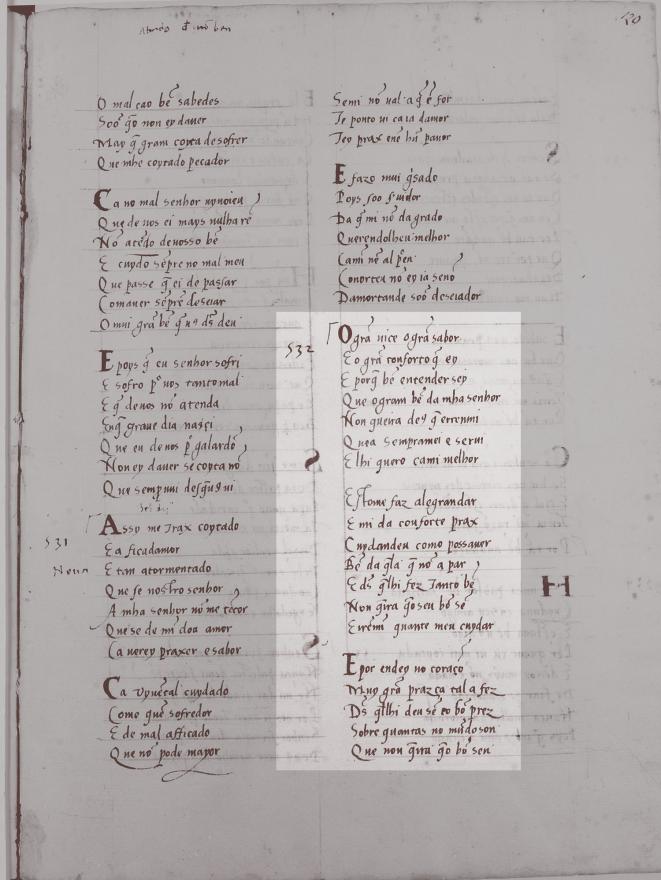 120
O mal cao bẽ sabedes
Soo q̃o non ey dauer
May q̃ gram coyta de sofrer
Que mhe coytado pecador
Ca no mal senhor uyuoieu
Que de uos ei mays nulhar ẽ
Nõ atẽdo de uosso bẽ
E cuydo sẽpre no mal meu
Que passe q̃ ei de passar
Com auer sẽpre deseiar
O mui grã bẽ q̃ uꝯ ds̃ deu
E poys q̃ eu senhor sofri
E sofro p̃ uos tanto mal
E q̃ de uos nõ atenda
En q̃ graue dia naçi
Que eu de uos p̃ galardõ
Non ey dauer se coyta nõ
Que sempr ui desq̃ uꝯ ui
531
Assy me trax coytado
E a ficad amor
Noua E tan atormentado
Que se nostro senhor
A mha senhor nõ me tẽ cor
Que se de mĩ doa amor
Ca uerey praxer e sabor
Ca uyu ẽ tal cuydado
Como quẽ sofredor
E de mal afficado
Que nõ pode mayor
Se mi nõ ual a q̃ ẽ for
Te ponto ui ca ia damor
Tey prax en e hũ pauor
E fazo mui g̃sado
Poys soo seruidor
Da q̃ mi nõ da grado
Querendolheu melhor
Ca mi nẽ al p̃ en
Conorteu nõ ey ia senõ
Da mort ande soo deseiador
532
O grã uiço o grã sabor
E o grã conforto q̃ ey
E porq̃ bẽ entender sey
Que o gram bẽ da mha senhor
Non queira deꝯ q̃ err en mi
Quea sempramei e serui
E lhi quero ca mi melhor
Esto me faz alegrandar
E mi da confort e prax
Cuydandeu como possauer
Bẽ da q̃la q̃ nõ a par
E ds̃ q̃lhi fez tanto bẽ
Non q̃ira q̃o seu bõ sẽ
Err ẽ mi quant e meu cuydar
E por end ey no coraçõ
Muy grã prazca tal a fez
Ds̃ q̃lhi deu sẽ e o bõ prez
Sobre quantas no mũdo son
Que non q̃ira q̃o bõ sen